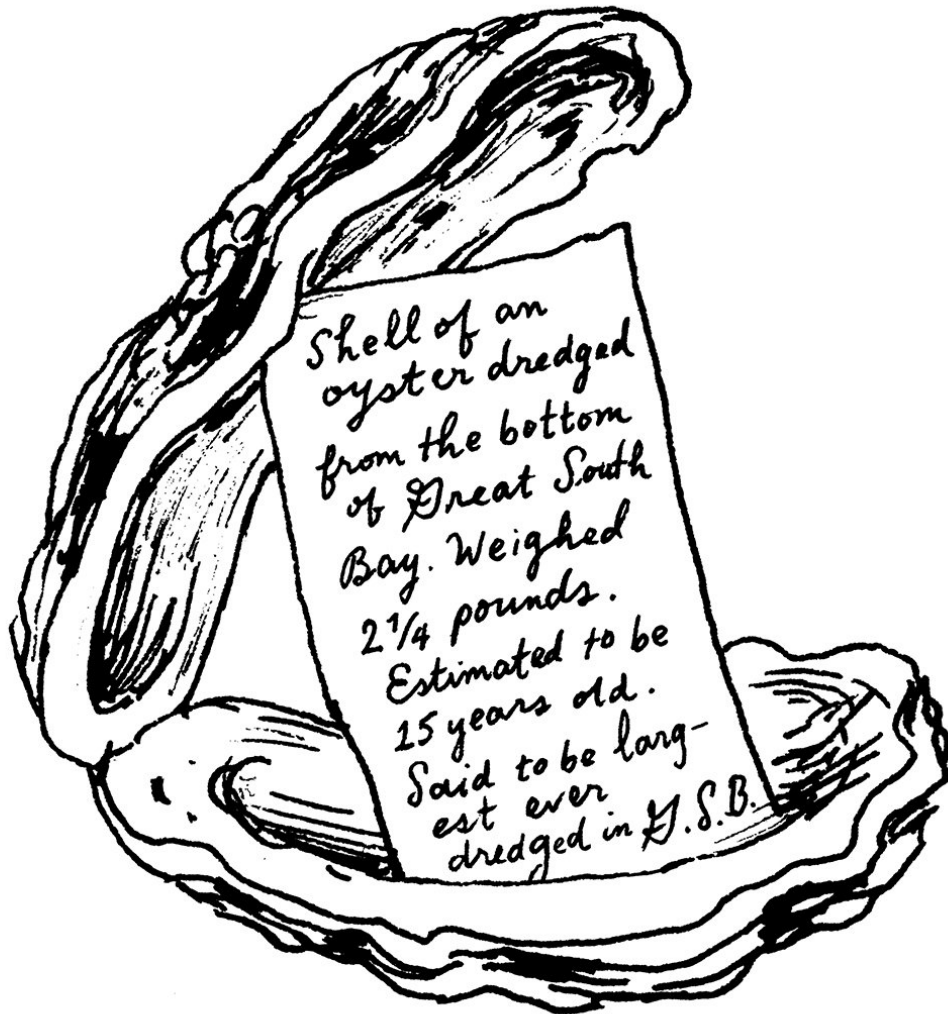 Shell of an
oyster dredged
from the bottom
of Great South
Bay. Weighed
2 1/4 pounds.
Estimated to be
15 years old.
Said to be larg-
est ever
dredged in G.S.B.